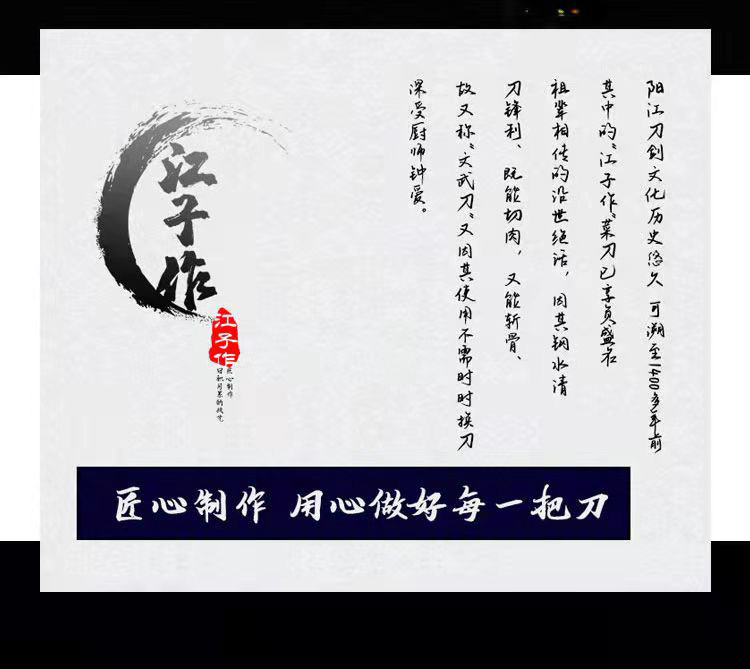 阳江刀剑文化历史悠久 可溯至1400多年前
其中的“江子作”菜刀已享负盛名
祖辈相传的沿世绝话，因其钢水清
刀锋利、既能切肉，又能斩骨、
故又称“文武刀”又因其使用不需时时换刀
深受厨师钟爱。
江子作
江子作
匠心制作
日积月累的技艺
匠心制作 用心做好每一把刀